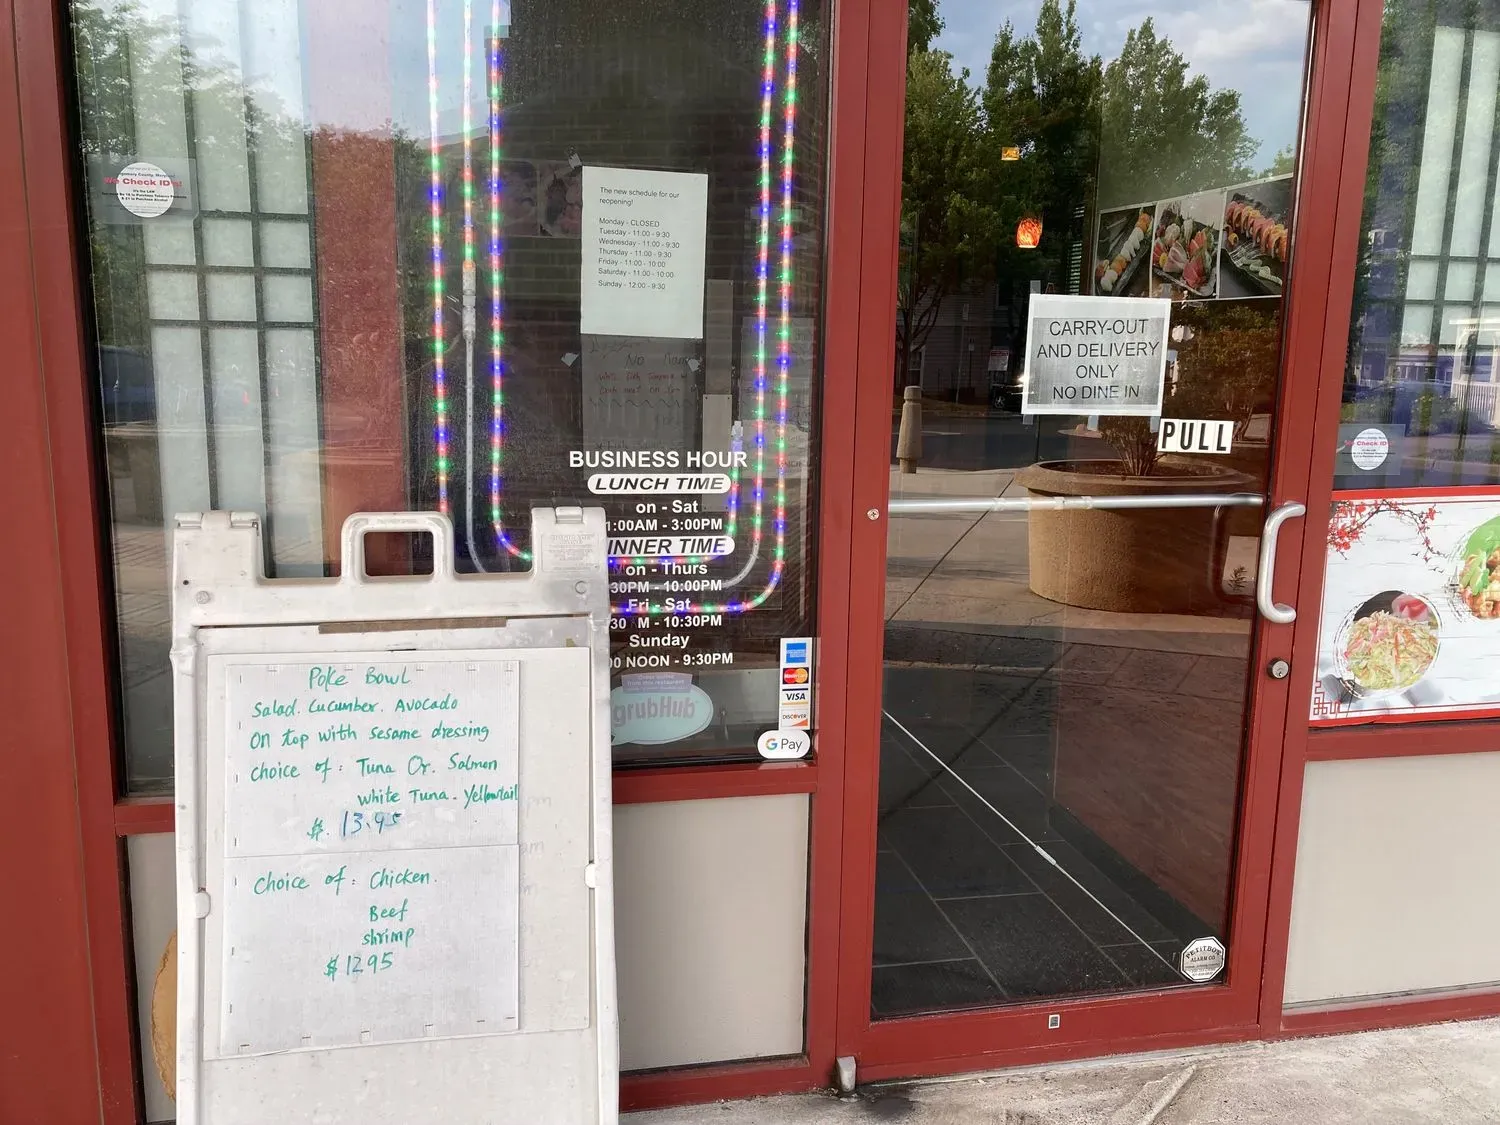 We Check ID's!
The new schedule for our
reopening!
Monday - CLOSED
Tuesday - 11:00 - 9:30
Wednesday - 11:00 - 9:30
Thursday - 11:00 - 9:30
Friday - 11:00 - 10:00
Saturday - 11:00 - 10:00
Sunday - 12:00 - 9:30
No
BUSINESS HOUR
LUNCH TIME
on - Sat
1:00AM - 3:00PM
INNER TIME
on - Thurs
30PM - 10:00PM
Fri - Sat
30 M - 10:30PM
Sunday
00 NOON - 9:30PM
grubHub
MasterCard
VISA
DISCOVER
G Pay
Poke Bowl
Salad. Cucumber. Avocado
On top with sesame dressing
Choice of: Tuna Or. Salmon
white Tuna. Yellowtail
$. 13.95
Choice of: Chicken.
Beef
shrimp
$ 12.95
CARRY-OUT
AND DELIVERY
ONLY
NO DINE IN
PULL
PETITBON
ALARM CO.
We Check ID